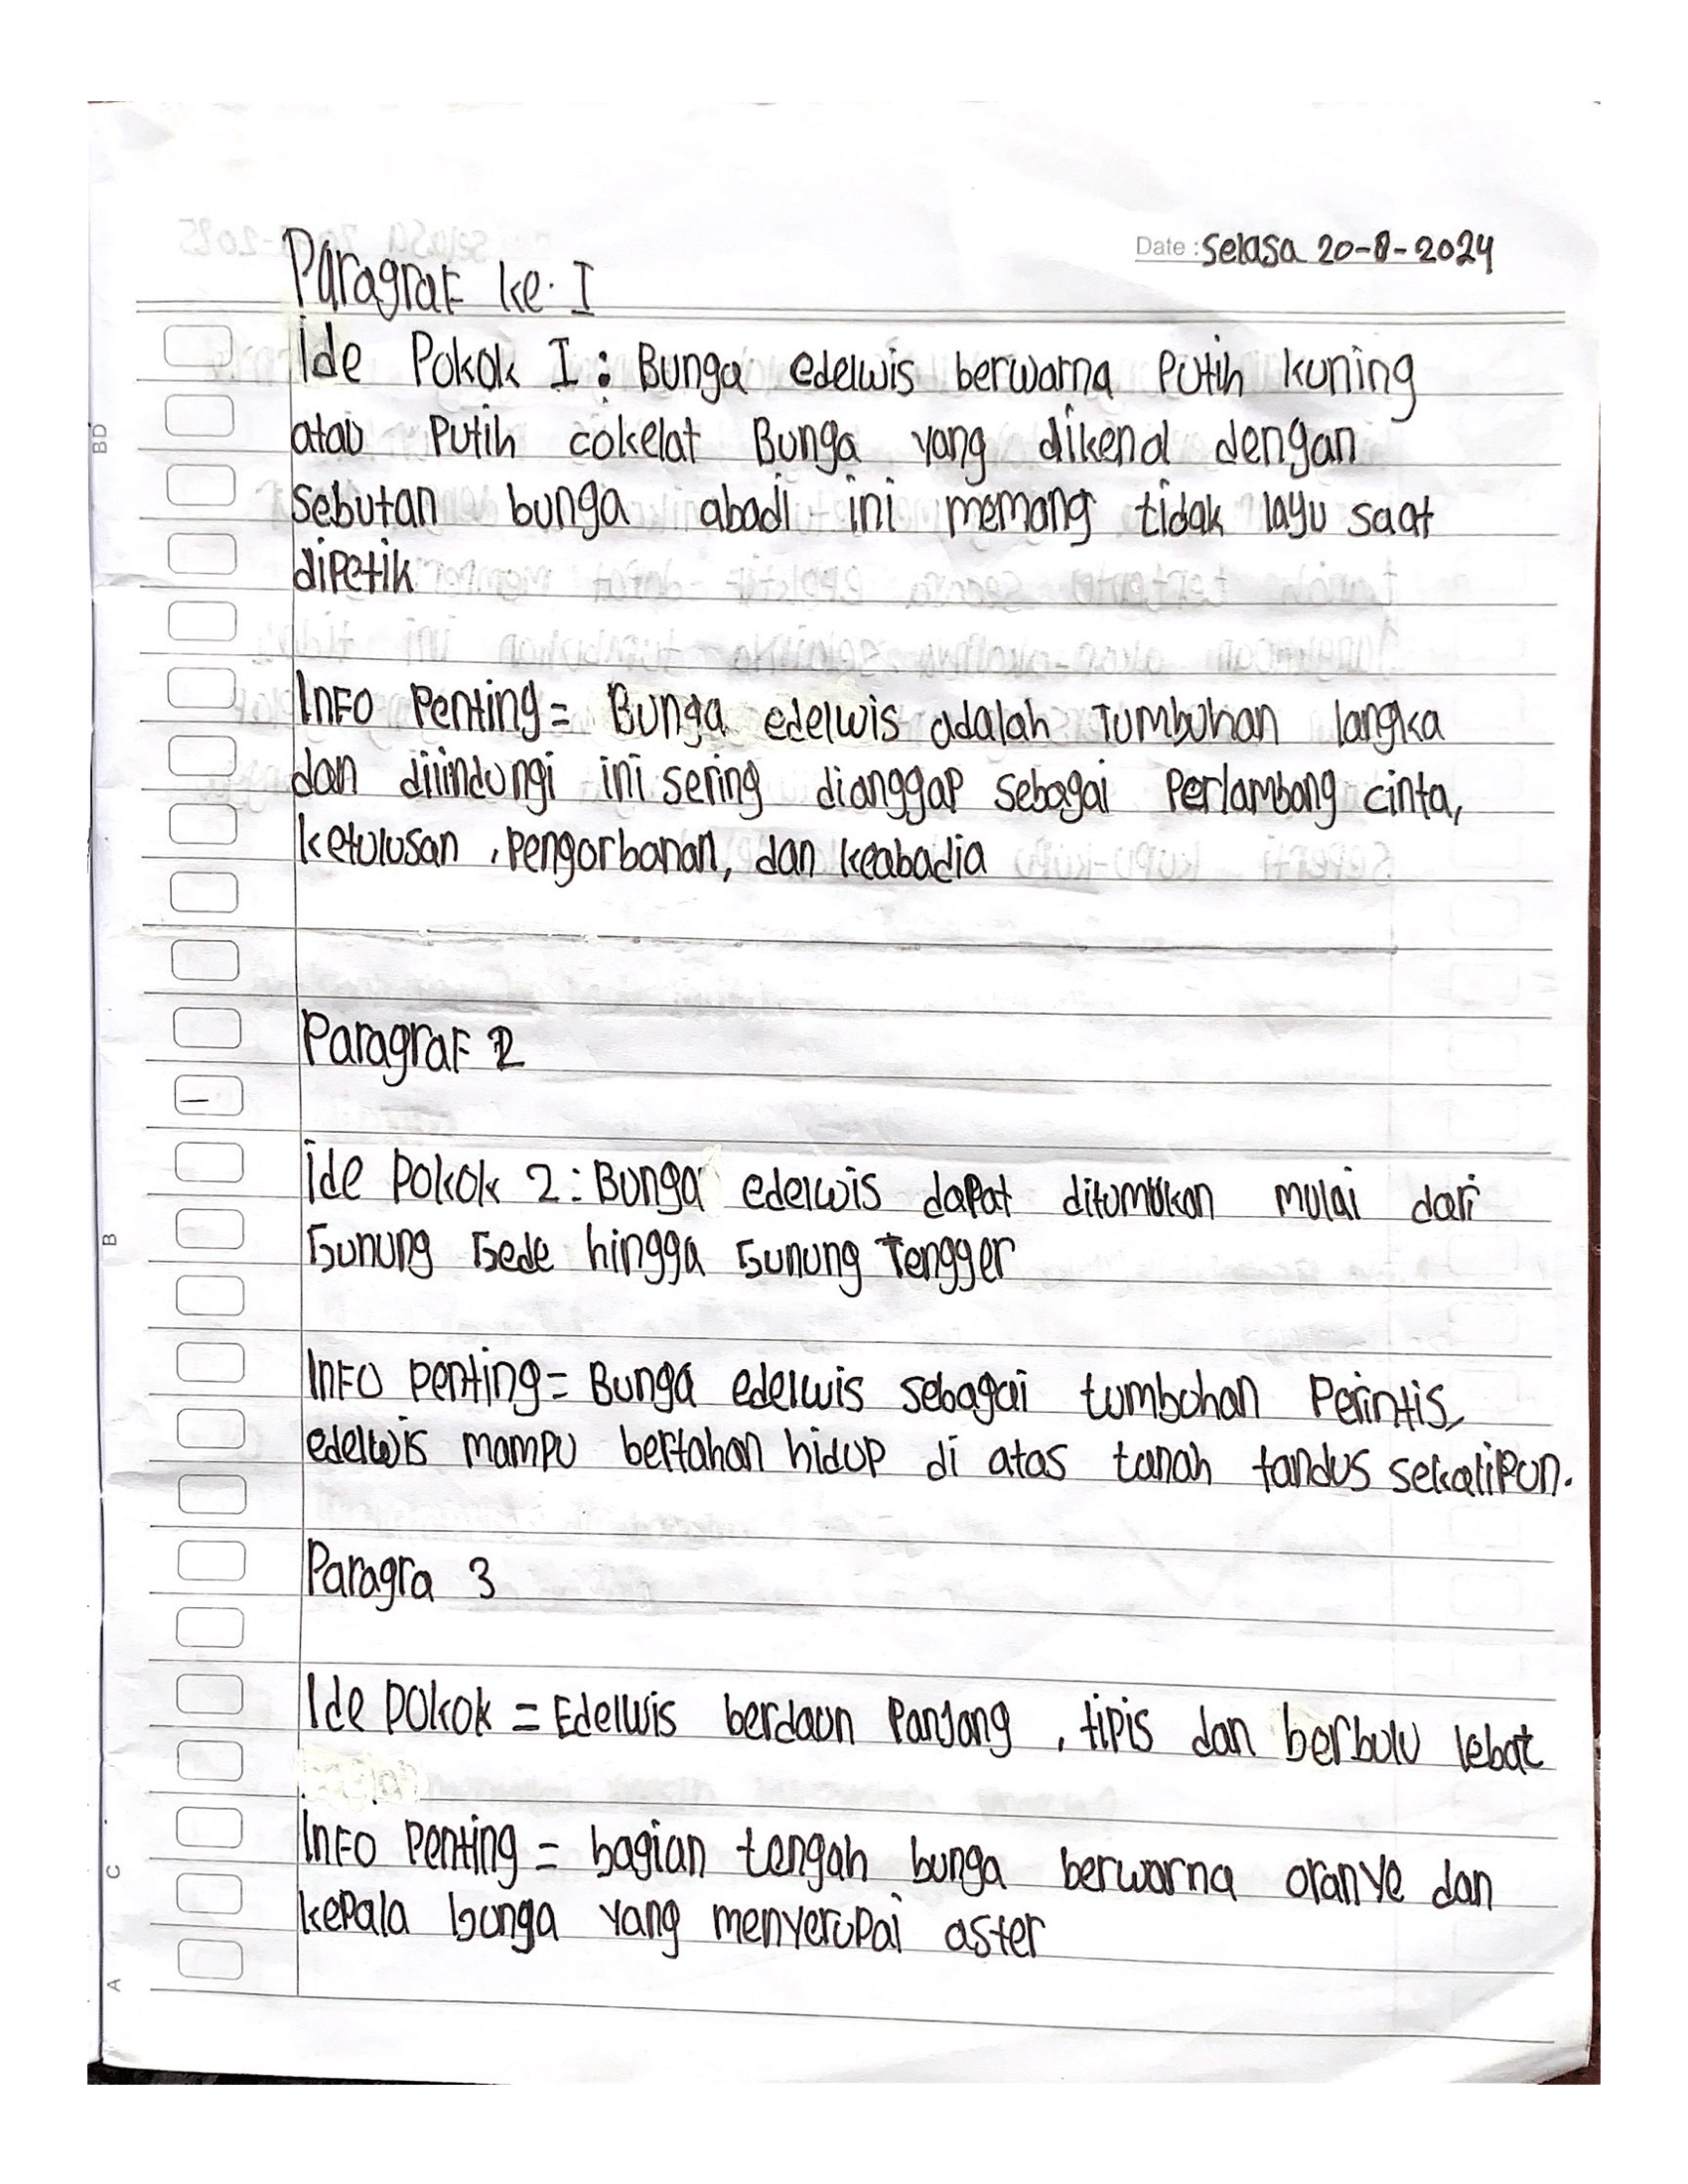 Date : Selasa 20-8-2024
Paragraf ke. I
Ide Pokok I : Bunga edelwis berwarna Putih kuning
atau Putih cokelat Bunga yang dikenal dengan
sebutan bunga abadi ini memang tidak layu saat
dipetik
Info Penting = Bunga edelwis adalah Tumbuhan langka
dan dilindungi ini sering dianggap sebagai Perlambang cinta,
ketulusan , pengorbanan, dan keabadia
Paragraf 2
Ide Pokok 2 : Bunga edelwis dapat ditumukan mulai dari
Gunung Gede hingga Gunung Tengger
Info penting = Bunga edelwis sebagai tumbuhan Perintis,
edelwis mampu bertahan hidup di atas tanah tandus sekalipun.
Paragra 3
Ide pokok = Edelwis berdaun Panjang , tipis dan berbulu lebat
Info Penting = bagian tengah bunga berwarna oranye dan
kepala bunga yang menyerupai aster
BD
B
C
A